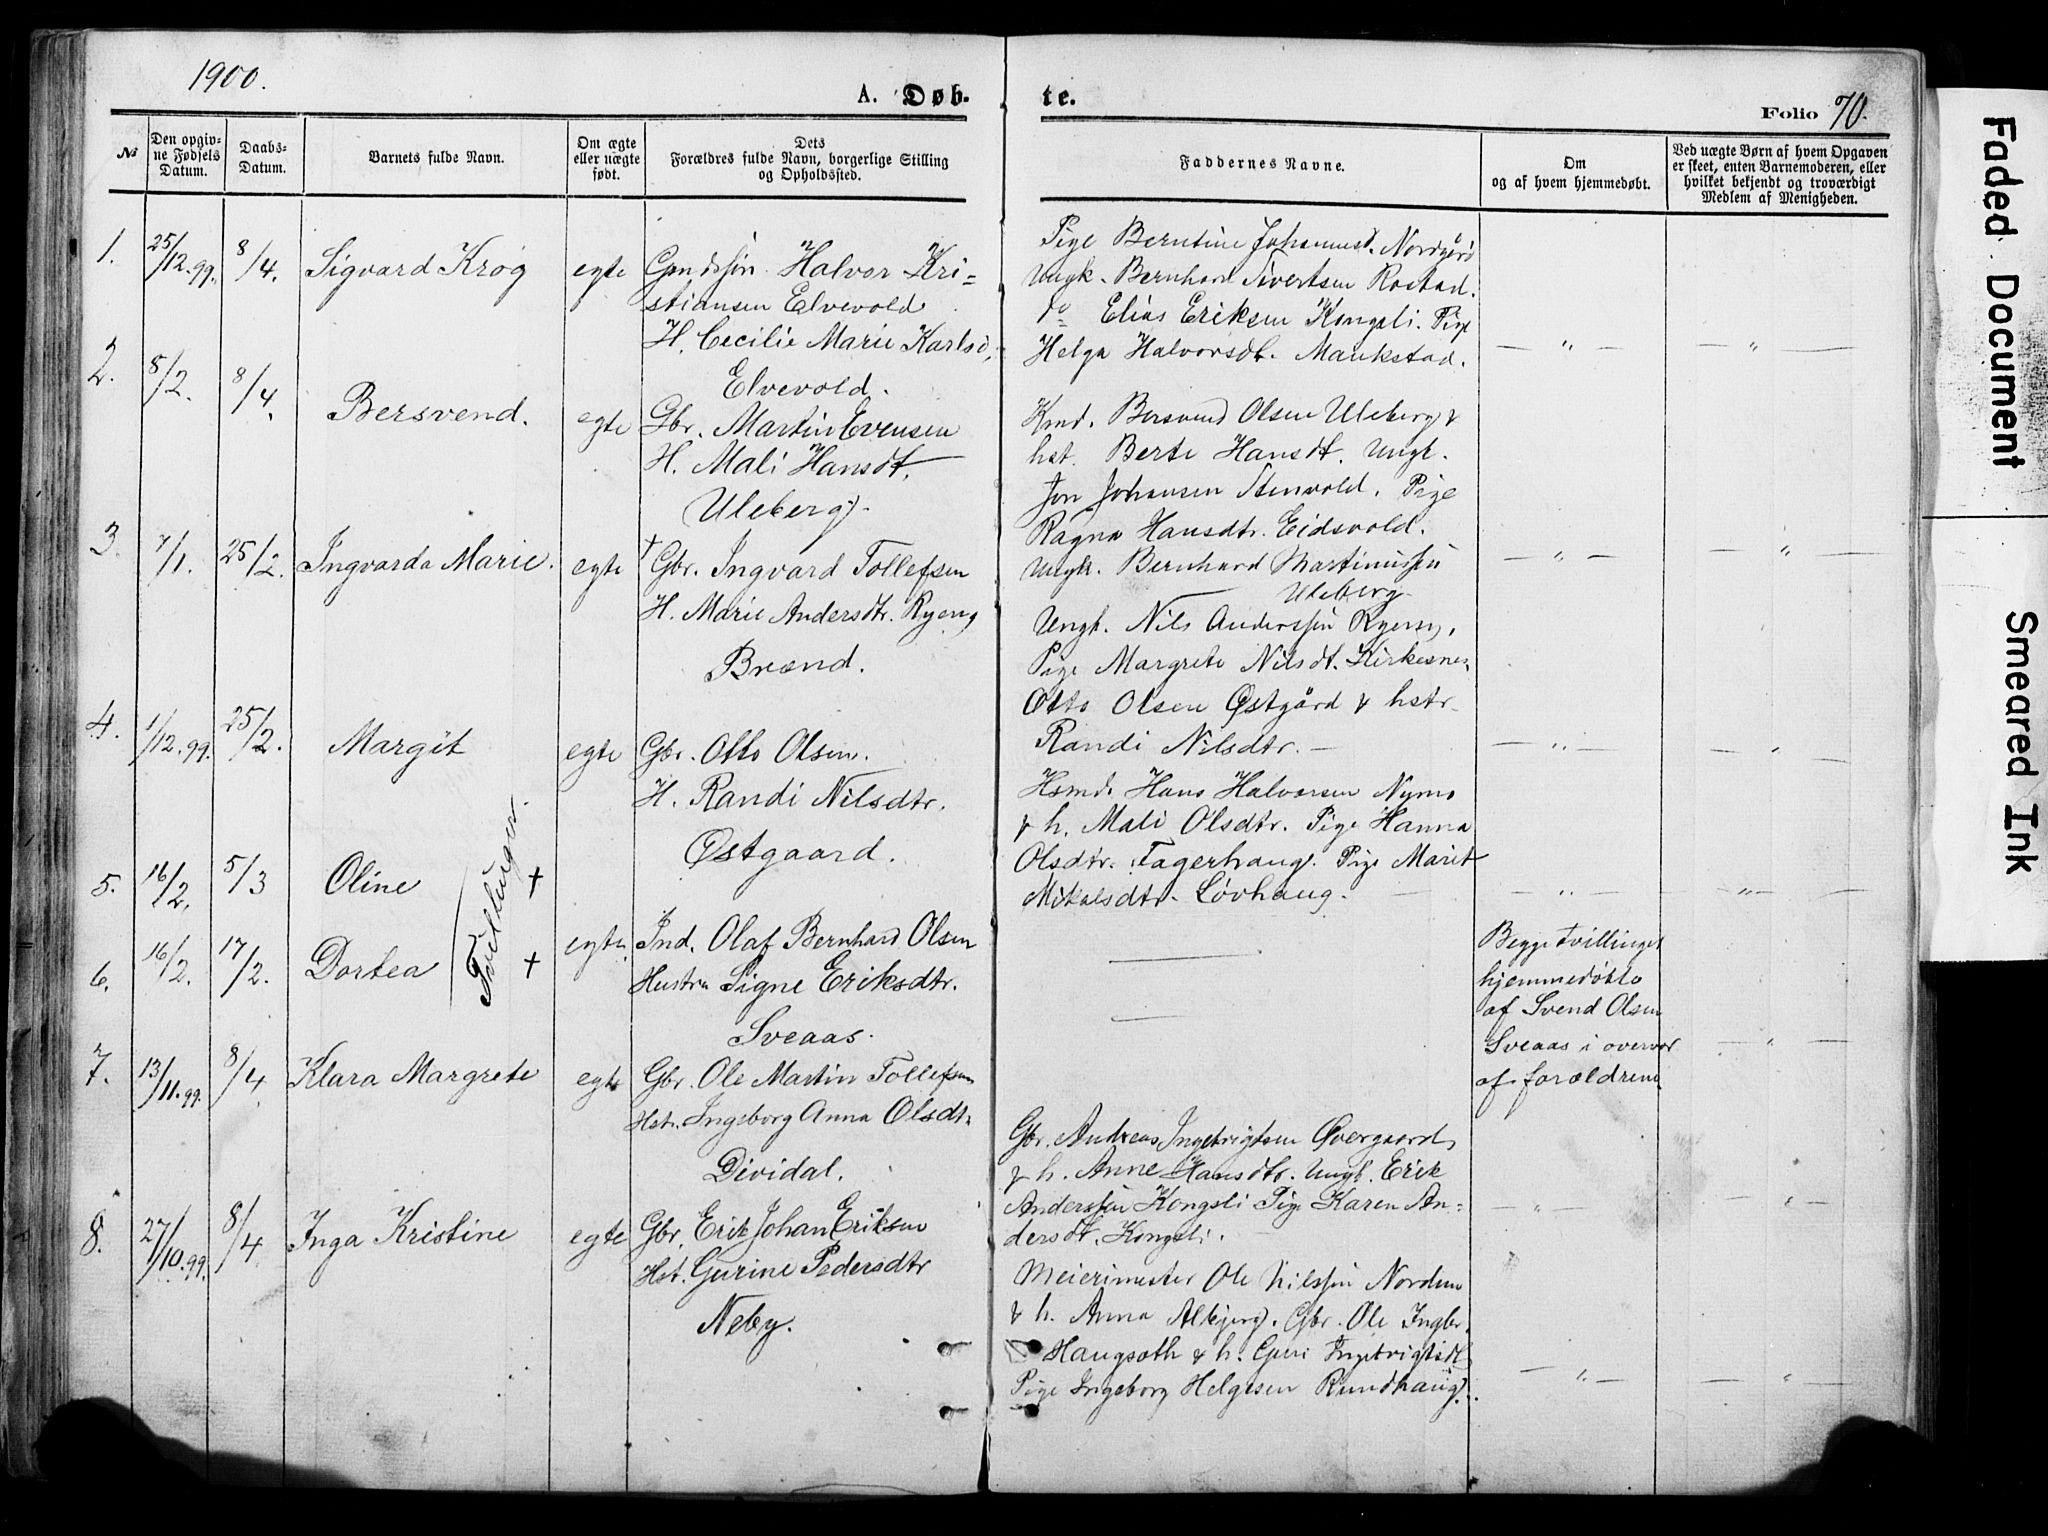 1900.
A. Døb-
te.
Folio 70.
№
Den opgiv-
ne Fødsels
Datum.
Daabs-
Datum.
Barnets fulde Navn.
Om ægte
eller uægte
født.
Dets
Forældres fulde Navn, borgerlige Stilling
og Opholdssted.
Faddernes Navne.
Om
og af hvem hjemmedøbt.
Ved uægte Børn af hvem Opgaven
er skeet, enten Barnemoderen, eller
hvilket bekjendt og troværdigt
Medlem af Menigheden.
1. 25/12.99. 8/4. Sigvard Krog egte Gmdssøn Halvor Kri=
stiansen Elvevold
H. Cecilie Marie Karlsd.
Elvevold.
Pige Berntine Johannesd. Nordgård
Ungk. Bernhard Sivertsen Rostad.
do Elias Eriksen Kongsli. Pige
Helga Halvorsdt. Maukstad. — " — — " —
2. 8/2. 8/4. Bersvend. egte Gbr. Martin Evensen
H. Mali Hansdt.
Uleberg.
Kmd. Bersvend Olsen Uleberg &
hst. Berte Hansdt. Ungk.
Jon Johansen Stenvold. Pige
Ragna Hansdtr. Eidsvold.
Ungk. Bernhard Martinussen — " — — " —
Uleberg.
3. 7/1. 25/2. Ingvarda Marie. egte † Gbr. Ingvard Tollefsen
H. Marie Andersdtr. Ryeng
Brænd.
Ungk. Nils Anderssøn Ryeng.
Pige Margrete Nilsdt. Kirkesnes
Otto Olsen Østgård & hstr.
Randi Nilsdtr. — — " — — " —
4. 1/12.99. 25/2. Margit egte Gbr. Otto Olsen.
H. Randi Nilsdtr.
Østgaard.
Hsmd. Hans Halvorsen Nymo
& h. Mali Olsdtr. Pige Hanna
Olsdtr. Fagerhaug. Pige Marit
Mikalsdtr. Løvhaug. — " — — " —
5. 16/2. 5/3 Oline †
Tvillinger.
6. 16/2. 17/2. Dortea † egte Ind. Olaf Bernhard Olsen
Hustru Signe Eriksdtr.
Sveaas.
Begge tvillinger
hjemmedøbte
af Svend Olsen
Sveaas i overvær
af forældrene — " —
7. 13/11.99. 8/4. Klara Margrete egte Gbr. Ole Martin Tollefsen
Hst. Ingeborg Anna Olsdt.
Dividal.
Gbr. Andreas Ingebrigtsen Øvergaard
& h. Anne Hansdtr. Ungk. Erik
Anderssøn Kongsli Pige Karen An=
dersdt. Kongsli. — " — — " —
8. 27/10.99. 8/4 Inga Kristine egte Gbr. Erik Johan Eriksen
Hst. Gurine Pedersdtr
Neby.
Meierimester Ole Nilssøn Nordmo
& h. Anna Albjerg. Gbr. Ole Ingbr.
Haugsæth & h. Guri Ingebrigtsdt.
Pige Ingeborg Helgesen Rundhaug. — " — — " —
Faded Document
Smeared Ink